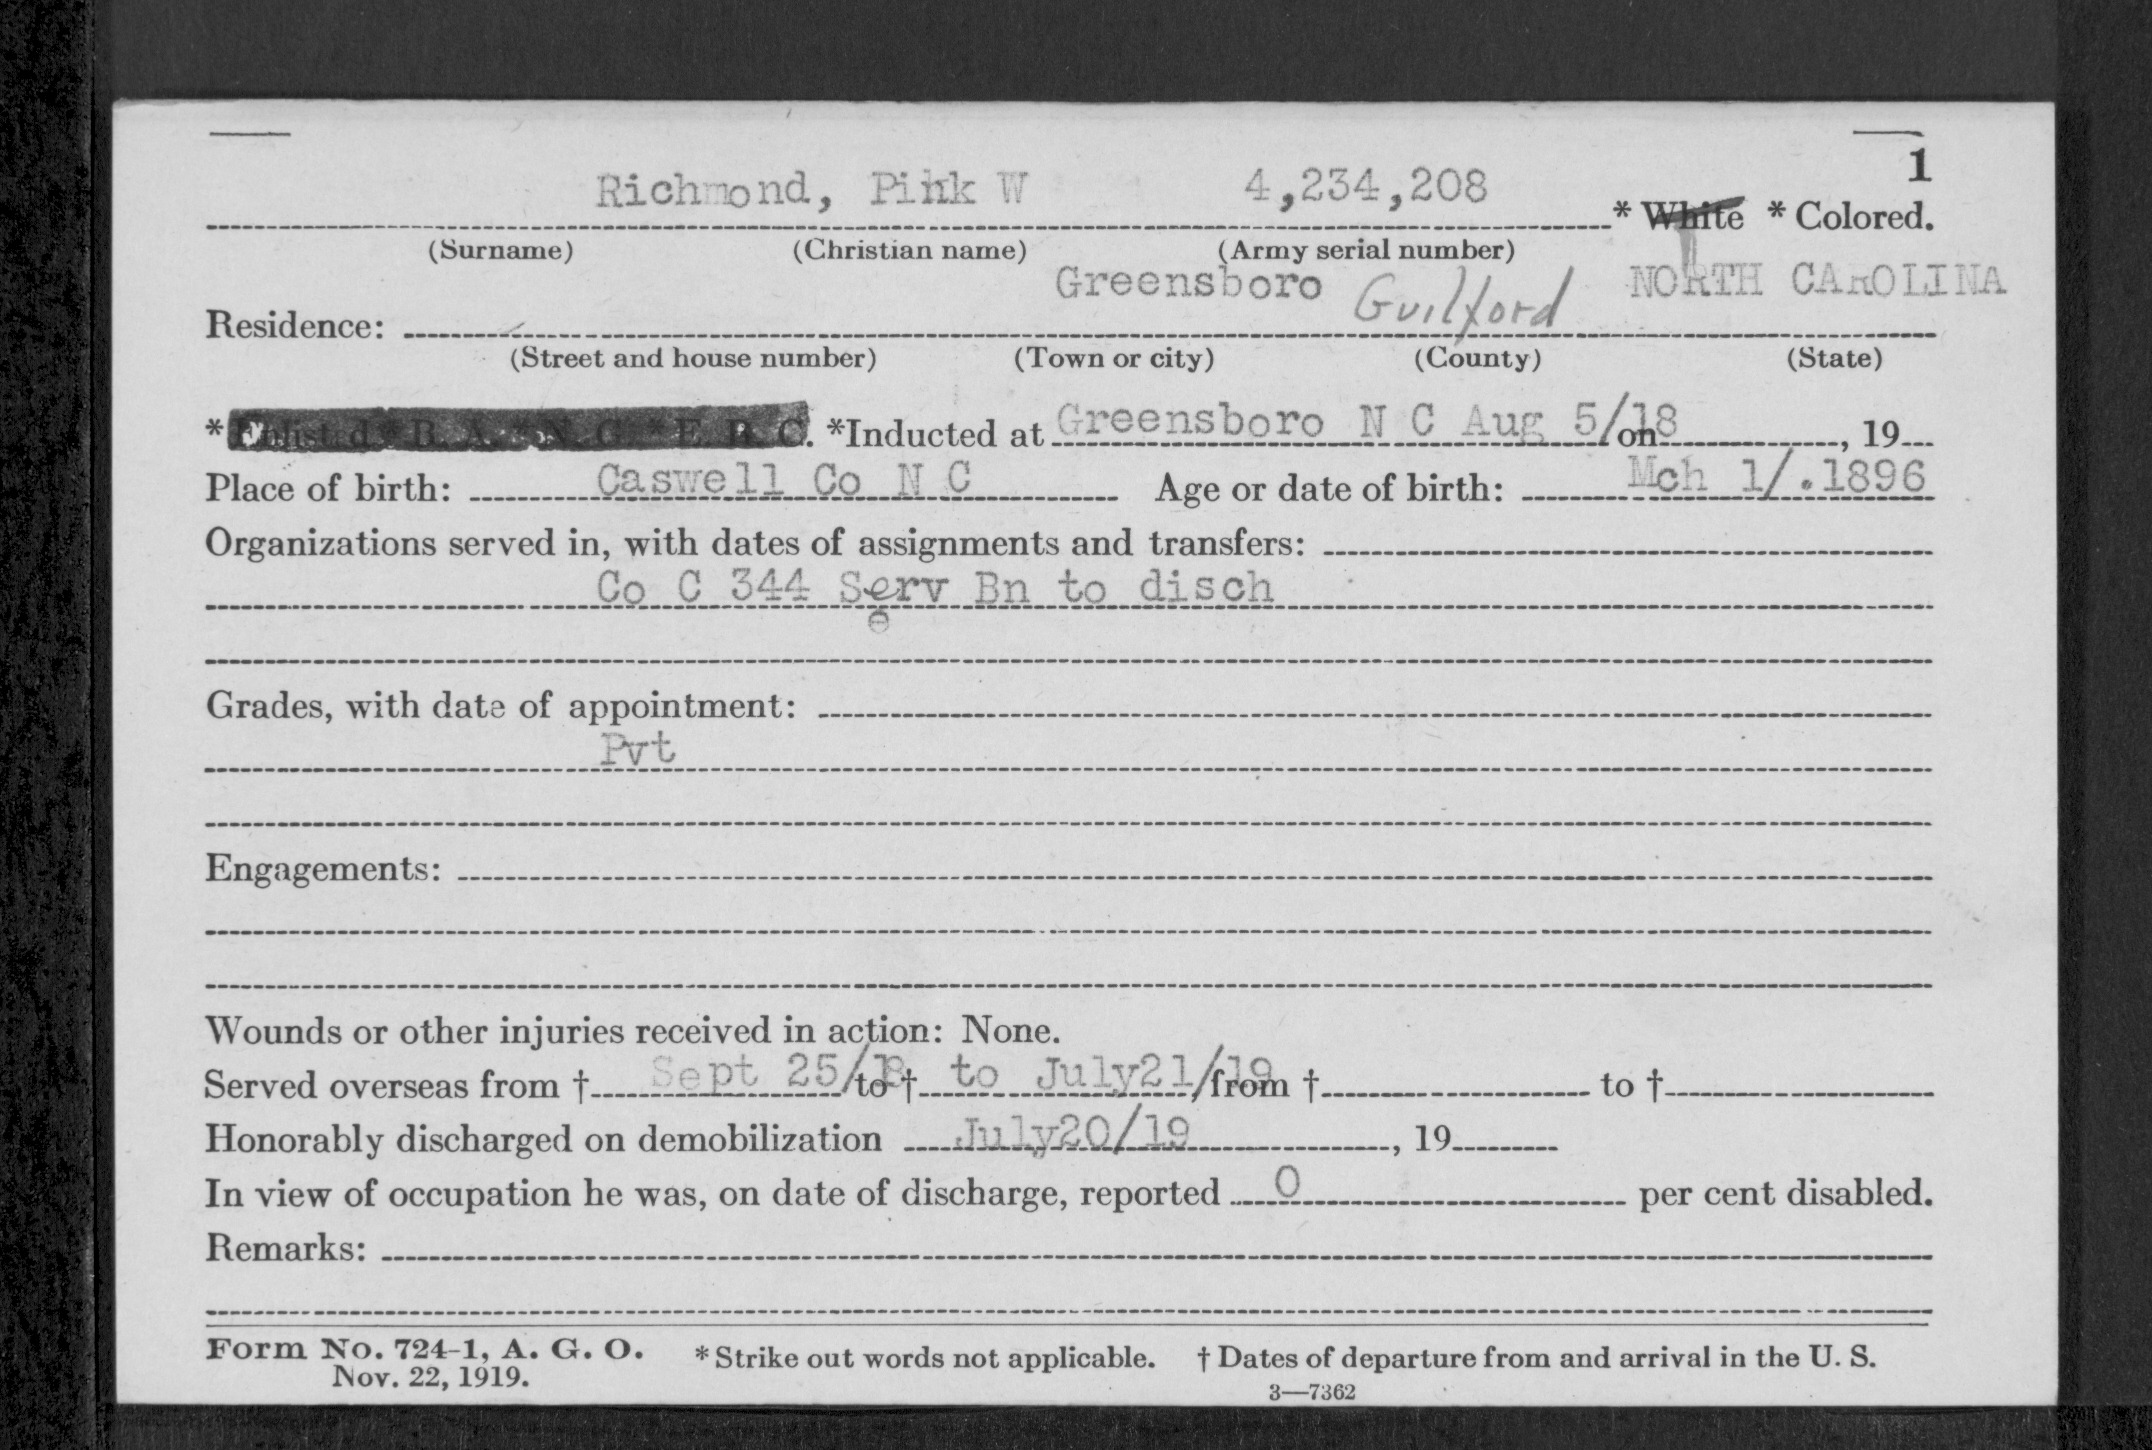 1
Richmond, Pink W 4,234,208 * White * Colored.
(Surname) (Christian name) (Army serial number)
Greensboro Guilford NORTH CAROLINA
Residence:
(Street and house number) (Town or city) (County) (State)
* Enlisted * R. A. * N. G. * E. R. C. *Inducted at Greensboro N C Aug 5/18 on , 19
Place of birth: Caswell Co N C Age or date of birth: Mch 1/.1896
Organizations served in, with dates of assignments and transfers:
Co C 344 Serv Bn to disch
e
Grades, with date of appointment:
Pvt
Engagements:
Wounds or other injuries received in action: None.
Served overseas from † Sept 25/18 to † to July21/19 from † to †
Honorably discharged on demobilization July20/19 , 19
In view of occupation he was, on date of discharge, reported 0 per cent disabled.
Remarks:
Form No. 724-1, A. G. O. * Strike out words not applicable. † Dates of departure from and arrival in the U. S.
Nov. 22, 1919.
3—7362